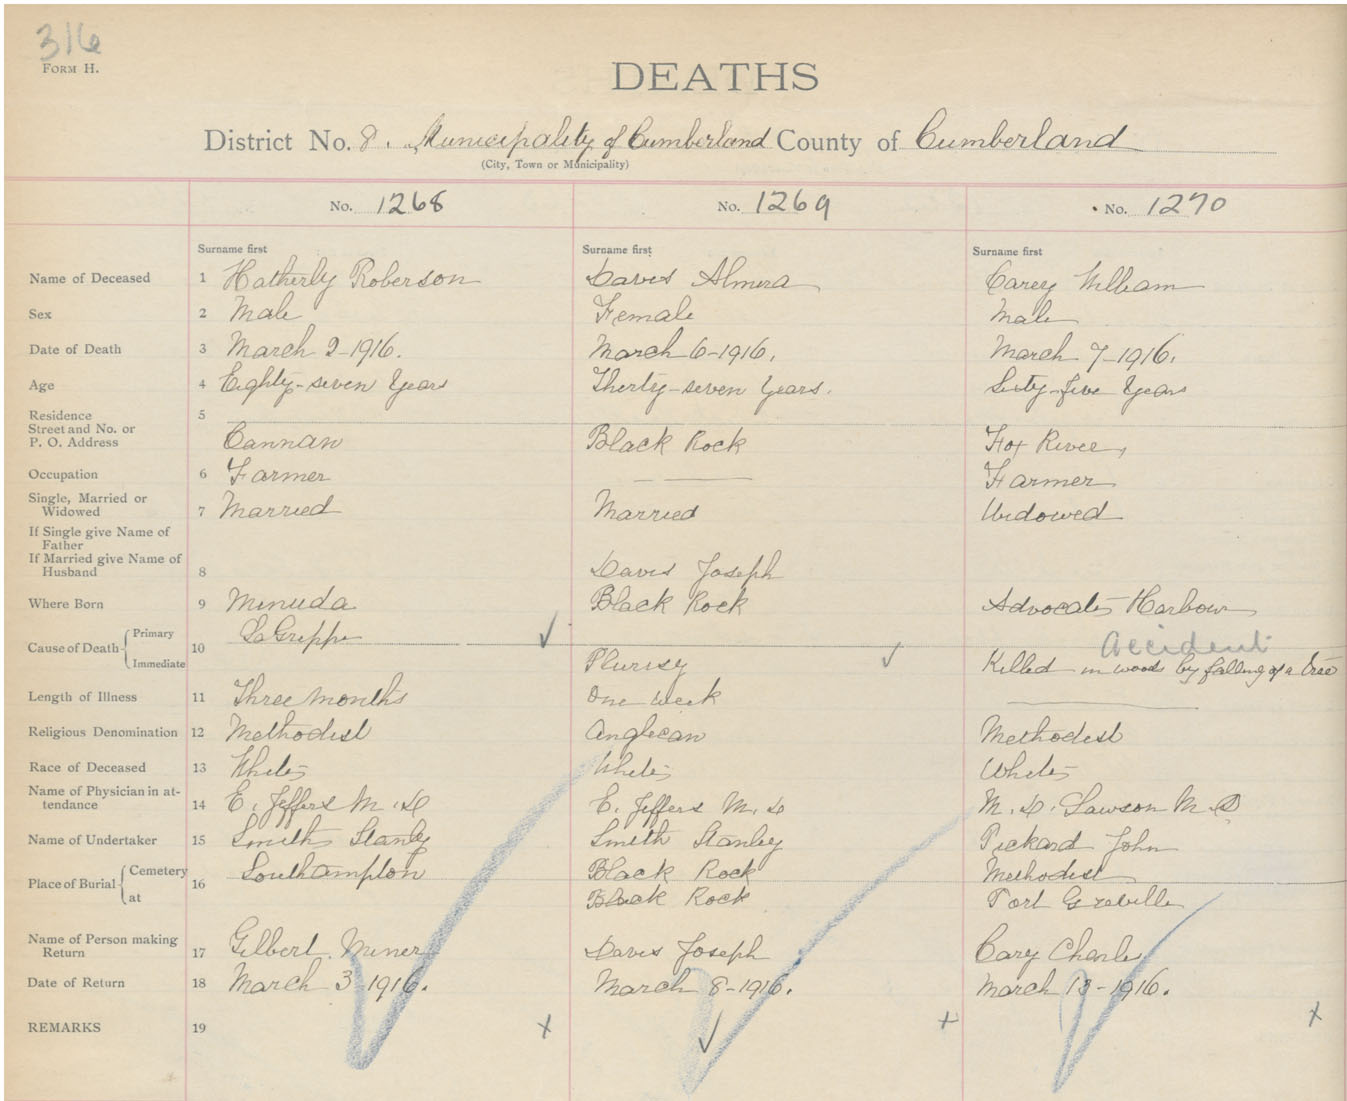 316
FORM H.
DEATHS
District No. 8. Municipality of Cumberland County of Cumberland
(City, Town or Municipality)
No. 1268 No. 1269 No. 1270
Surname first Surname first Surname first
Name of Deceased 1 Hatherly Roberson Davis Almira Carey William
Sex 2 Male Female Male
Date of Death 3 March 2-1916. March 6-1916. March 7-1916.
Age 4 Eighty-seven Years Thirty-seven Years. Sixty-five Years
Residence 5
Street and No. or
P. O. Address Cannan Black Rock Fox River
Occupation 6 Farmer Farmer
Single, Married or
Widowed 7 Married Married Widowed
If Single give Name of
Father
If Married give Name of
Husband 8 Davis Joseph
Where Born 9 Minuda Black Rock Advocate Harbour
Cause of Death Primary 10 LaGrippe Accident
Immediate Plurisy Killed in woods by falling of a tree
Length of Illness 11 Three months One week
Religious Denomination 12 Methodist Anglican Methodist
Race of Deceased 13 White White White
Name of Physician in at-
tendance 14 E. Jeffers M.D E. Jeffers M.D M.D. Lawson M.D
Name of Undertaker 15 Smith Stanly Smith Stanley Pickard John
Place of Burial Cemetery 16 Southampton Black Rock Methodist
at Black Rock Port Greville
Name of Person making
Return 17 Gilbert Miner Davis Joseph Cary Charles
Date of Return 18 March 3 1916. March 8-1916. March 13-1916.
REMARKS 19